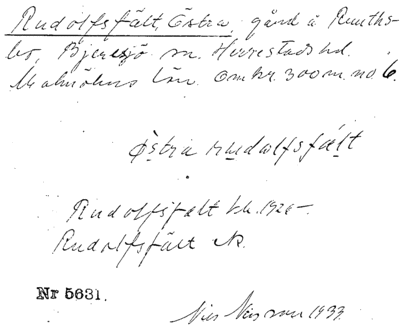 Rudolfsfält, Östra, gård å Ruuths-
bo, Bjeresjö sn. Herrestads hd.
Malmöhus län. Omkr. 300 m. no 6.
östra rudolfsfält
Rudolfsfält kk. 1920-
Rudolfsfält
Nr 5631.
Nils 1933